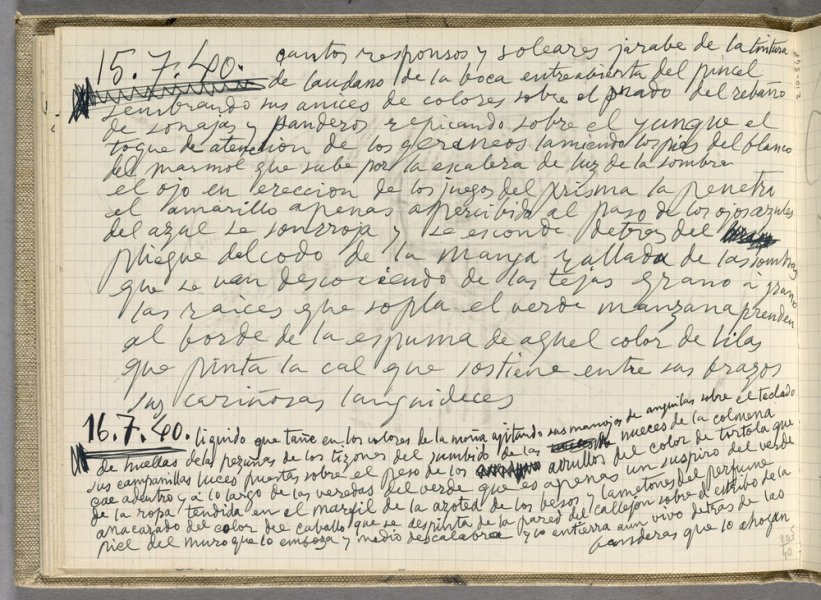 15.7.40. cantos responsos y soleares jarabe de la tintura
de laudano de la boca entreabierta del pincel
sembrando sus anices de colores sobre el prado del rebaño
de sonajas y panderos repicando sobre el yunque el
toque de atencion de los geraneos lamiendo los pies del blanco
del marmol que sube por la escalera de luz de la sombra
el ojo en ereccion de los juegos del prisma la penetra
el amarillo apenas apercibido al paso de los ojos azules
del azul se sonrroja y se esconde detras del
pliegue del codo de la manga y allada de las sombras
que se van descociendo de las tejas grano à grano
las raices que sopla el verde manzana prenden
al borde de la espuma de aquel color de lilas
que pinta la cal que sostiene entre sus brazos
sus cariñosas languideces
16.7.40. liquido que tañe en los colores de la moña ajitando sus manojos de anguilas sobre el teclado
de huellas de las pezuñas de los tizones del zumbido de las nueces de la colmena
sus campanillas luces puestas sobre el peso de los arrullos del color de tortola que
cae adentro y a lo largo de las veredas del verde que es apenas un suspiro del verde
de la ropa tendida en el marfil de la azotea de los besos y lametones del perfume
anacarado del color de caballo que se despinta de la pared del callejon sobre el estribo de la
piel del muro que lo emboza y medio descalabra y lo entierra aun vivo detras de las
banderas que lo ahogan